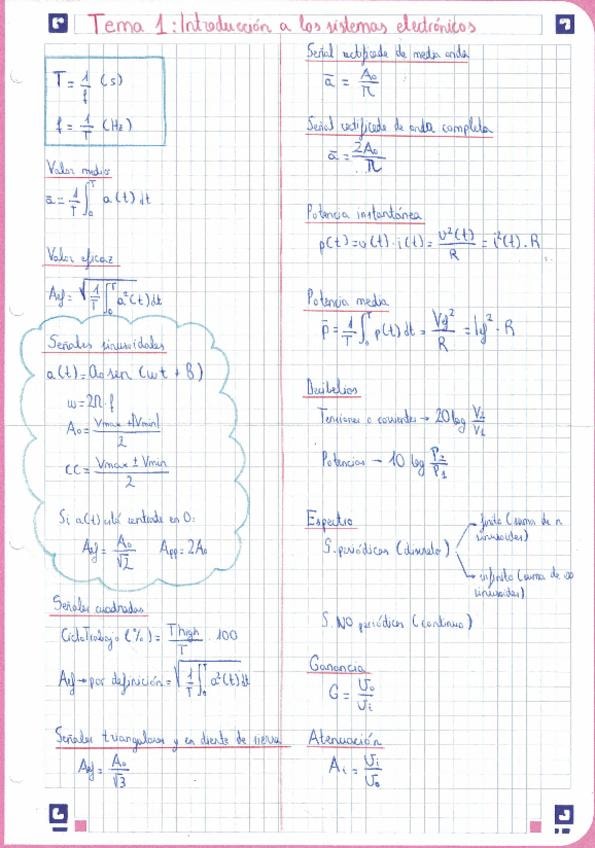 Tema 1: Introducción a los sistemas electrónicos
T = 1/f (s)
f = 1/T (Hz)
Valor medio
ā = 1/T ∫₀ᵀ a(t) dt
Valor eficaz
Aef = √(1/T ∫₀ᵀ a²(t) dt)
Señales sinusoidales
a(t) = A₀ sen (ωt + β)
ω = 2π · f
A₀ = (Vmax + |Vmin|)/2
CC = (Vmax ± Vmin)/2
Si a(t) está centrada en 0:
Aef = A₀/√2 App = 2A₀
Señales cuadradas
Ciclo Trabajo (%) = Thigh/T · 100
Aef → por definición = √(1/T ∫₀ᵀ a²(t) dt)
Señales triangulares y en diente de sierra
Aef = A₀/√3
Señal rectificada de media onda
ā = A₀/π
Señal rectificada de onda completa
ā = 2A₀/π
Potencia instantánea
p(t) = v(t) · i(t) = v²(t)/R = i²(t) · R
Potencia media
p̄ = 1/T ∫₀ᵀ p(t) dt = Vef²/R = Ief² · R
Decibelios
Tensiones o corrientes → 20 log V₂/V₁
Potencias → 10 log P₂/P₁
Espectro
S. periódicas (discreto)
→ finito (suma de n
sinusoides)
→ infinito (suma de ∞
sinusoides)
S. NO periódicas (continuo)
Ganancia
G = Uo/Ui
Atenuación
Ai = Ui/Uo